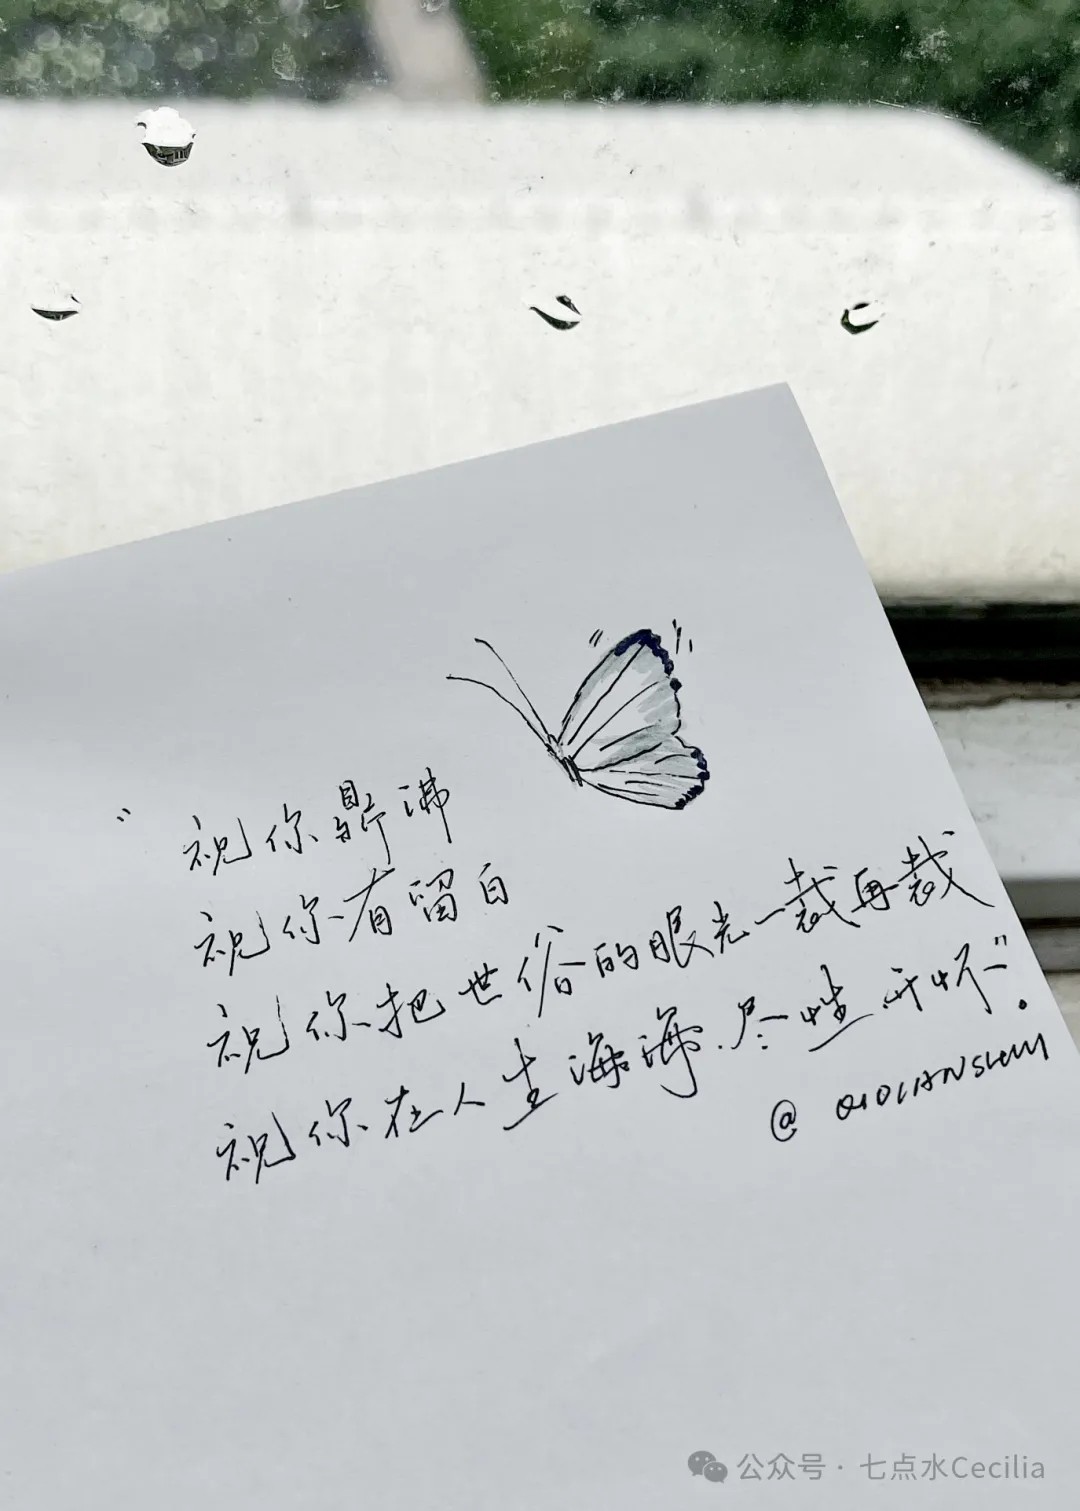 “祝你鼎沸
祝你有留白
祝你把世俗的眼光一裁再裁
祝你在人生海海.尽性开怀”。
@ QIDIANSHUI
公众号·七点水Cecilia